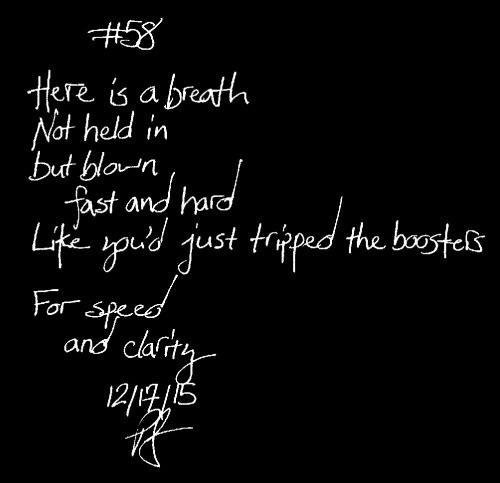 #58
Here is a breath
Not held in
but blown
fast and hard
Like you'd just tripped the boosters
For speed
and clarity
12/17/15